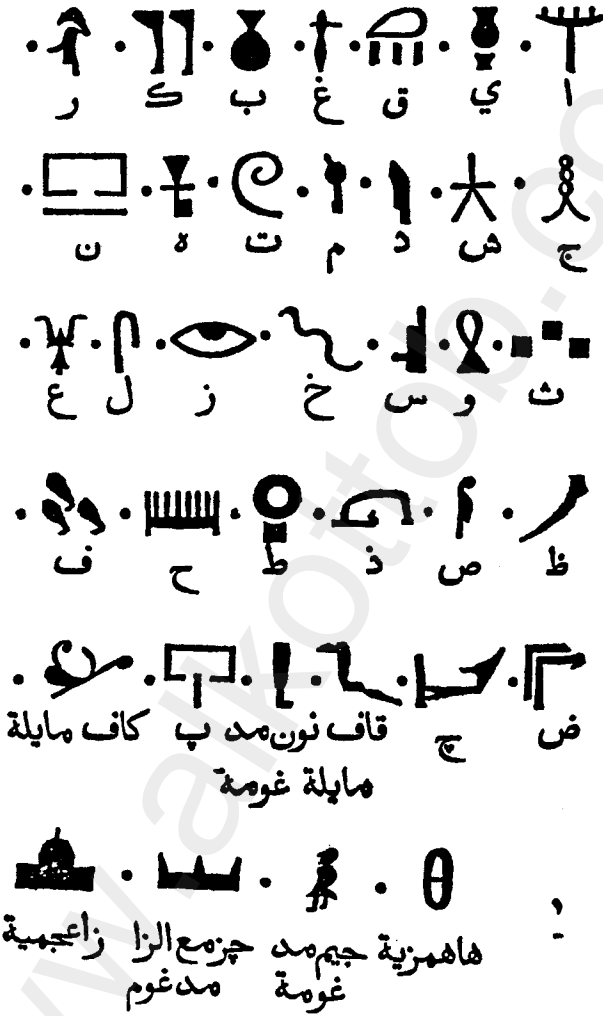 ا ي ق غ ب ك ر
ج ش د م ت ه ن
ث و س خ ز ل ع
ظ ص ذ ط ح ف
ض چ قاف نون مد پ كاف مايلة
مايلة غومة
هاهمزية جيم مد چزمع الزا زاعجمية
غومة مدغوم
www.alkottob.c